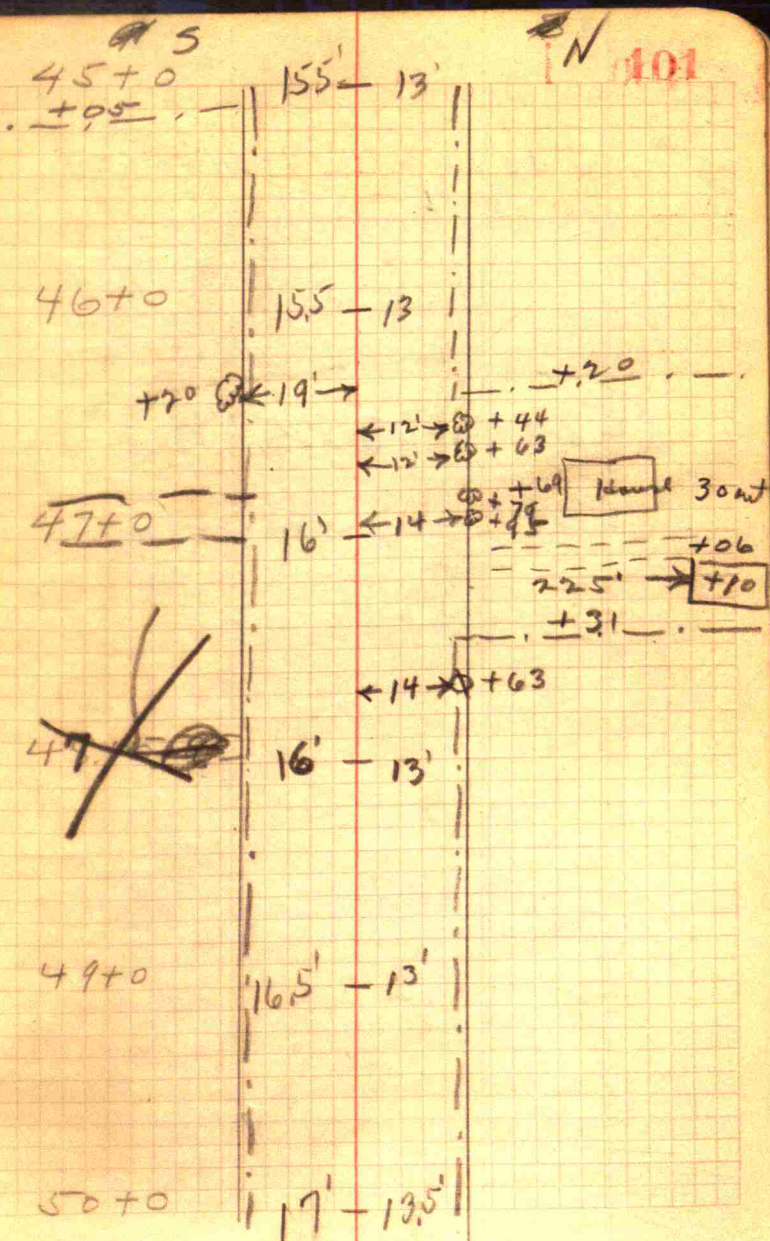 S N 101
45+0 155' — 13'
+05
46+0 15.5 — 13
+20 19' +20
12' + 44
12' + 63
+69 House 30 out
47+0 16' — 14
+06
225' +10
+31
14 +63
47 16' — 13'
49+0 16.5' — 13'
50+0 17' — 13.5'